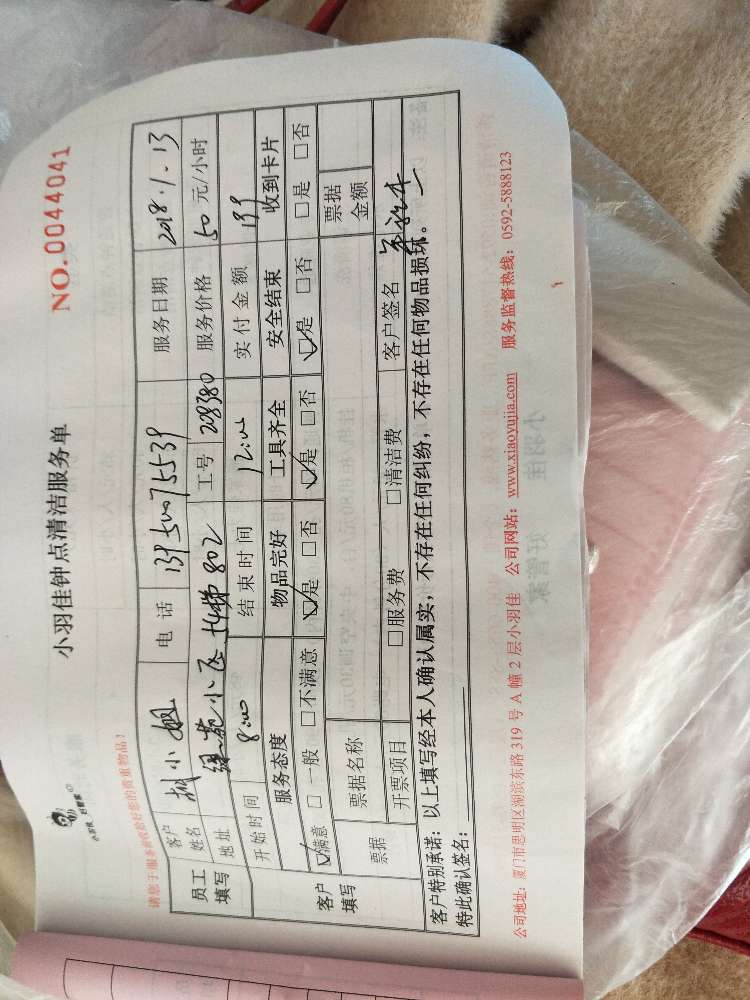 小羽佳钟点清洁服务单
NO.0044041
小羽佳 好管家
请您于服务前收拾好您的贵重物品!
员工填写 客户姓名 林小姐 电话 13950075539 服务日期 2018.1.13
地址 绿苑小区 梯802 工号 228380 服务价格 50 元/小时
开始时间 8:00 结束时间 12:00 实付金额 199
客户填写 服务态度 物品完好 工具齐全 安全结束 收到卡片
☑满意 □一般 □不满意 ☑是 □否 ☑是 □否 ☑是 □否 □是 □否
票据 票据名称 票据金额
开票项目 □服务费 □清洁费 客户签名
客户特别承诺:以上填写经本人确认属实,不存在任何纠纷,不存在任何物品损坏。
特此确认签名:
公司地址:厦门市思明区湖滨东路 319 号 A 幢 2 层小羽佳 公司网站:www.xiaoyujia.com 服务监督热线:0592-5888123